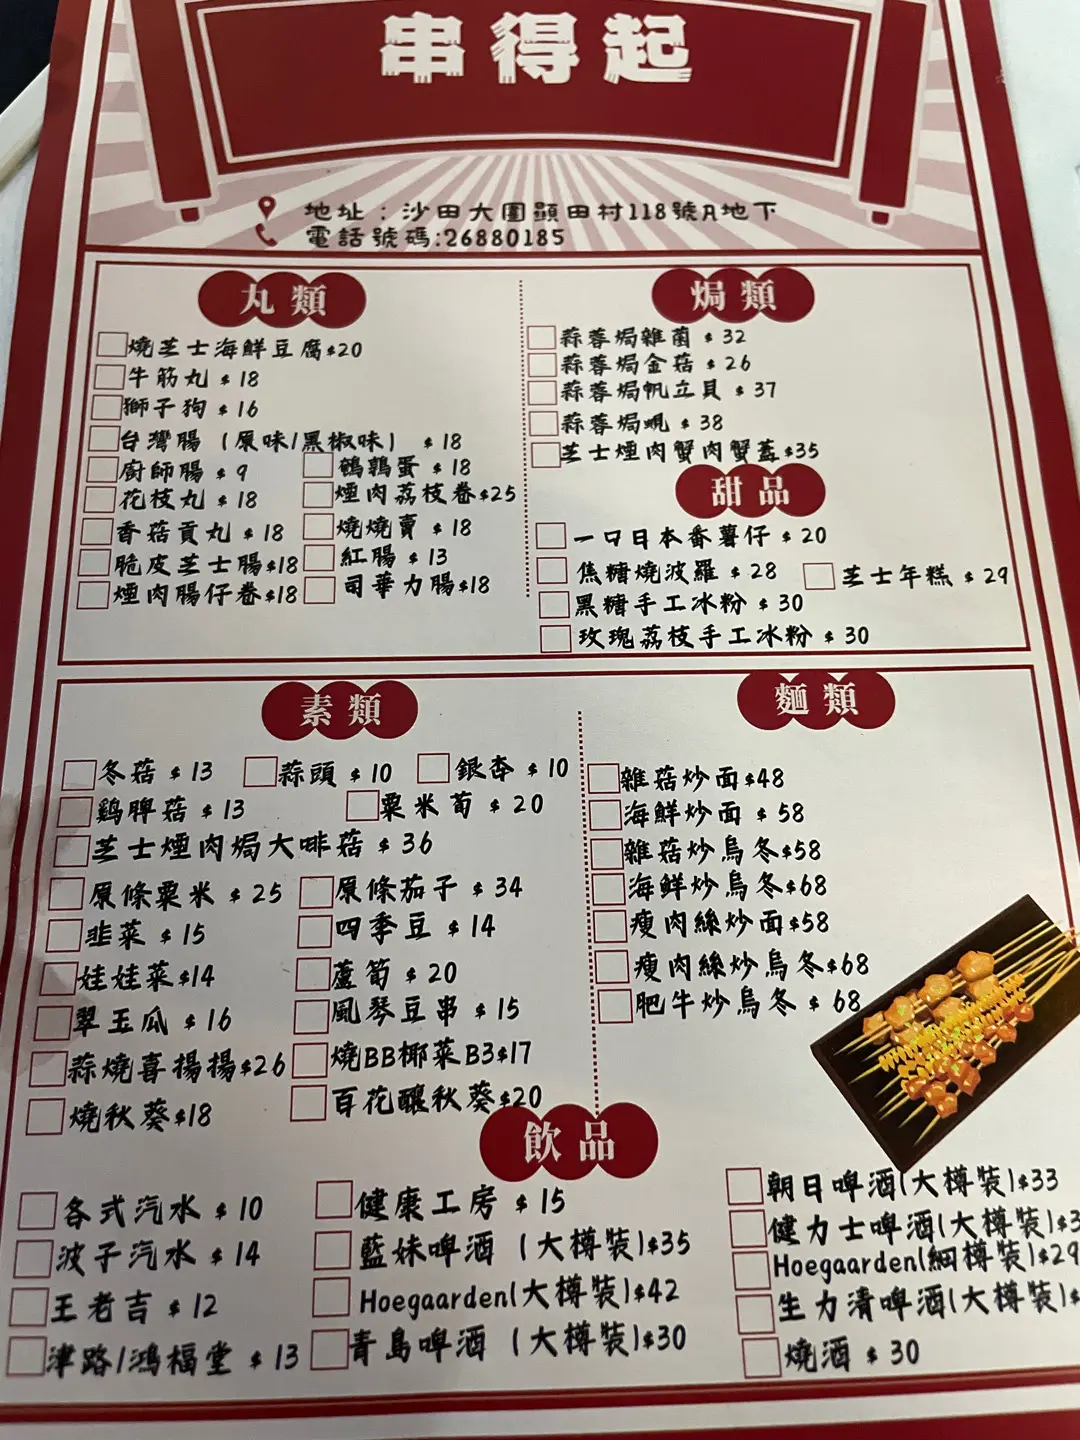 串得起
地址：沙田大圍顯田村118號A地下
電話號碼:26880185
丸類
燒芝士海鮮豆腐$20
牛筋丸 $ 18
獅子狗 $ 16
台灣腸 (原味/黑椒味) $ 18
廚師腸 $ 9
鵪鶉蛋 $ 18
花枝丸 $ 18
煙肉荔枝卷$25
香菇貢丸 $ 18
燒燒賣 $ 18
脆皮芝士腸$18
紅腸 $ 13
煙肉腸仔卷$18
司華力腸$18
焗類
蒜蓉焗雜菌 $ 32
蒜蓉焗金菇 $ 26
蒜蓉焗帆立貝 $ 37
蒜蓉焗蜆 $ 38
芝士煙肉蟹肉蟹蓋$35
甜品
一口日本番薯仔 $ 20
焦糖燒波羅 $ 28
芝士年糕 $ 29
黑糖手工冰粉 $ 30
玫瑰荔枝手工冰粉 $ 30
素類
冬菇 $ 13
蒜頭 $ 10
銀杏 $ 10
鷄脾菇 $ 13
粟米荀 $ 20
芝士煙肉焗大啡菇 $ 36
原條粟米 $ 25
原條茄子 $ 34
韭菜 $ 15
四季豆 $ 14
娃娃菜$14
蘆筍 $ 20
翠玉瓜 $ 16
風琴豆串 $ 15
蒜燒喜揚揚$26
燒BB椰菜B3$17
燒秋葵$18
百花釀秋葵$20
麵類
雜菇炒面$48
海鮮炒面 $ 58
雜菇炒烏冬$58
海鮮炒烏冬$68
瘦肉絲炒面$58
瘦肉絲炒烏冬$68
肥牛炒烏冬 $ 68
飲品
各式汽水 $ 10
波子汽水 $ 14
王老吉 $ 12
津路/鴻福堂 $ 13
健康工房 $ 15
藍妹啤酒 (大樽裝)$35
Hoegaarden(大樽裝)$42
青島啤酒 (大樽裝)$30
朝日啤酒(大樽裝)$33
健力士啤酒(大樽裝)$3
Hoegaarden(細樽裝)$29
生力清啤酒(大樽裝)$
燒酒 $ 30